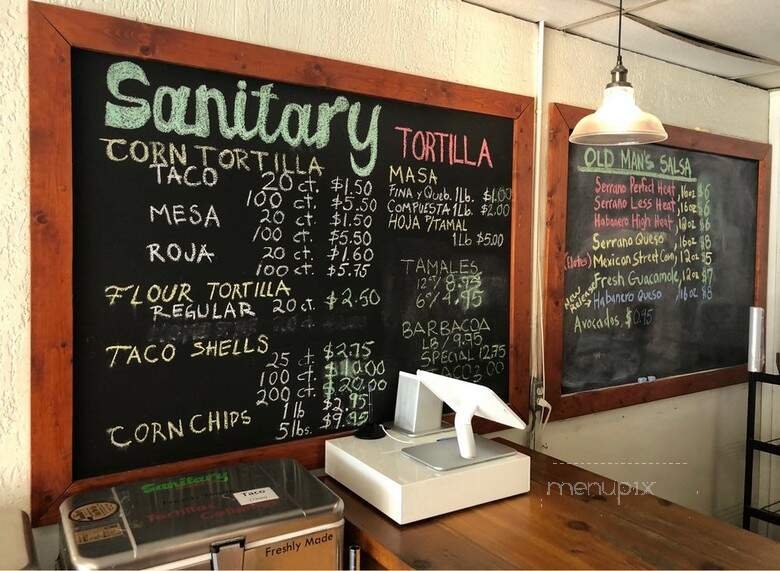 Sanitary
TORTILLA
CORN TORTILLA
TACO 20 ct. $1.50
100 ct. $5.50
MESA 20 ct. $1.50
100 ct. $5.50
ROJA 20 ct. $1.60
100 ct. $5.75
FLOUR TORTILLA
REGULAR 20 ct. $2.50
TACO SHELLS
25 ct $2.75
100 ct. $10.00
200 ct. $20.00
CORN CHIPS 1 lb $2.95
5 lbs. $9.95
MASA
FINA y Queb. 1Lb. $1.00
COMPUESTA 1Lb. $2.00
HOJA P/TAMAL
1Lb $5.00
TAMALES
12 / 8.95
6 / 4.95
BARBACOA
LB / 9.95
SPECIAL 12.75
TACO 3.00
OLD MAN'S SALSA
Serrano Perfect Heat, 16oz $6
Serrano Less Heat, 16oz $6
Habanero High Heat, 12oz $6
Serrano Queso, 16oz $8
(Elotes) Mexican Street Corn, 12oz $5
Fresh Guacamole, 12oz $7
New Release Habanero Queso, 16oz $8
Avocados, $0.95
Sanitary
Tortillas
Taco
Freshly Made
menupix